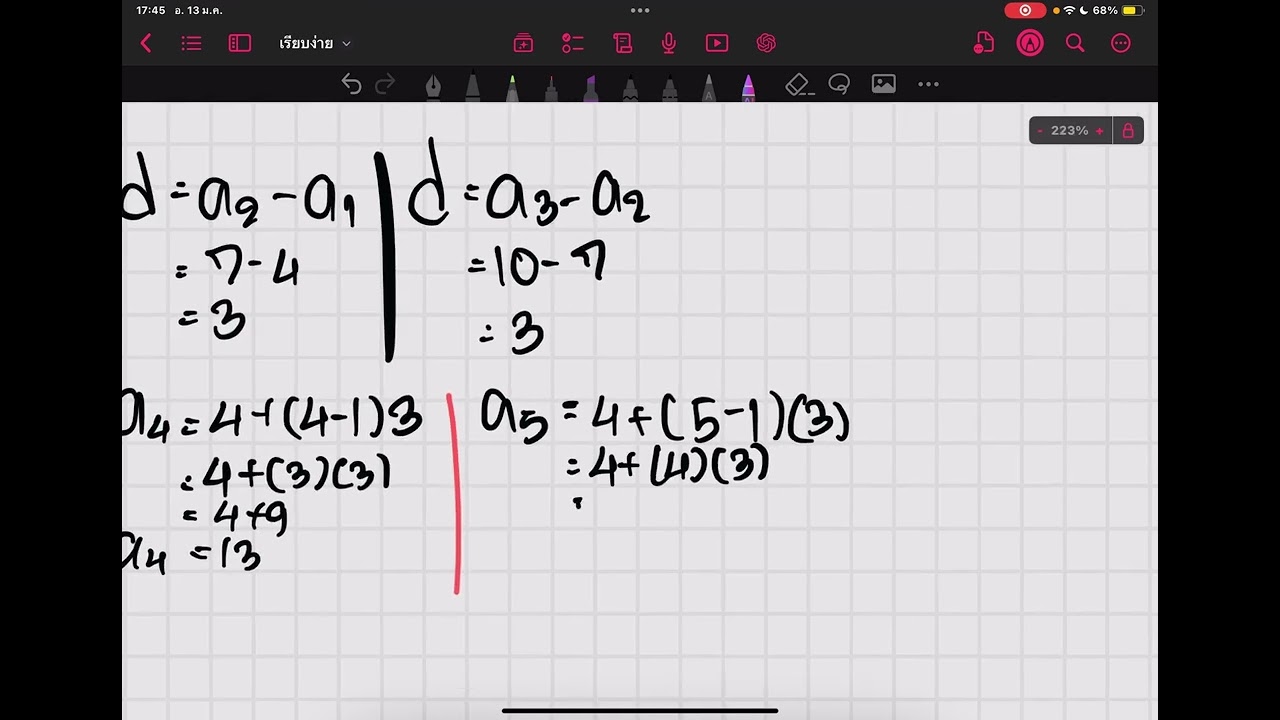 17:45 อ. 13 ม.ค.
68%
เรียบง่าย
- 223% +
d = a₂ - a₁
= 7 - 4
= 3
d = a₃ - a₂
= 10 - 7
= 3
a₄ = 4 + (4 - 1)3
= 4 + (3)(3)
= 4 + 9
a₄ = 13
a₅ = 4 + (5 - 1)(3)
= 4 + (4)(3)